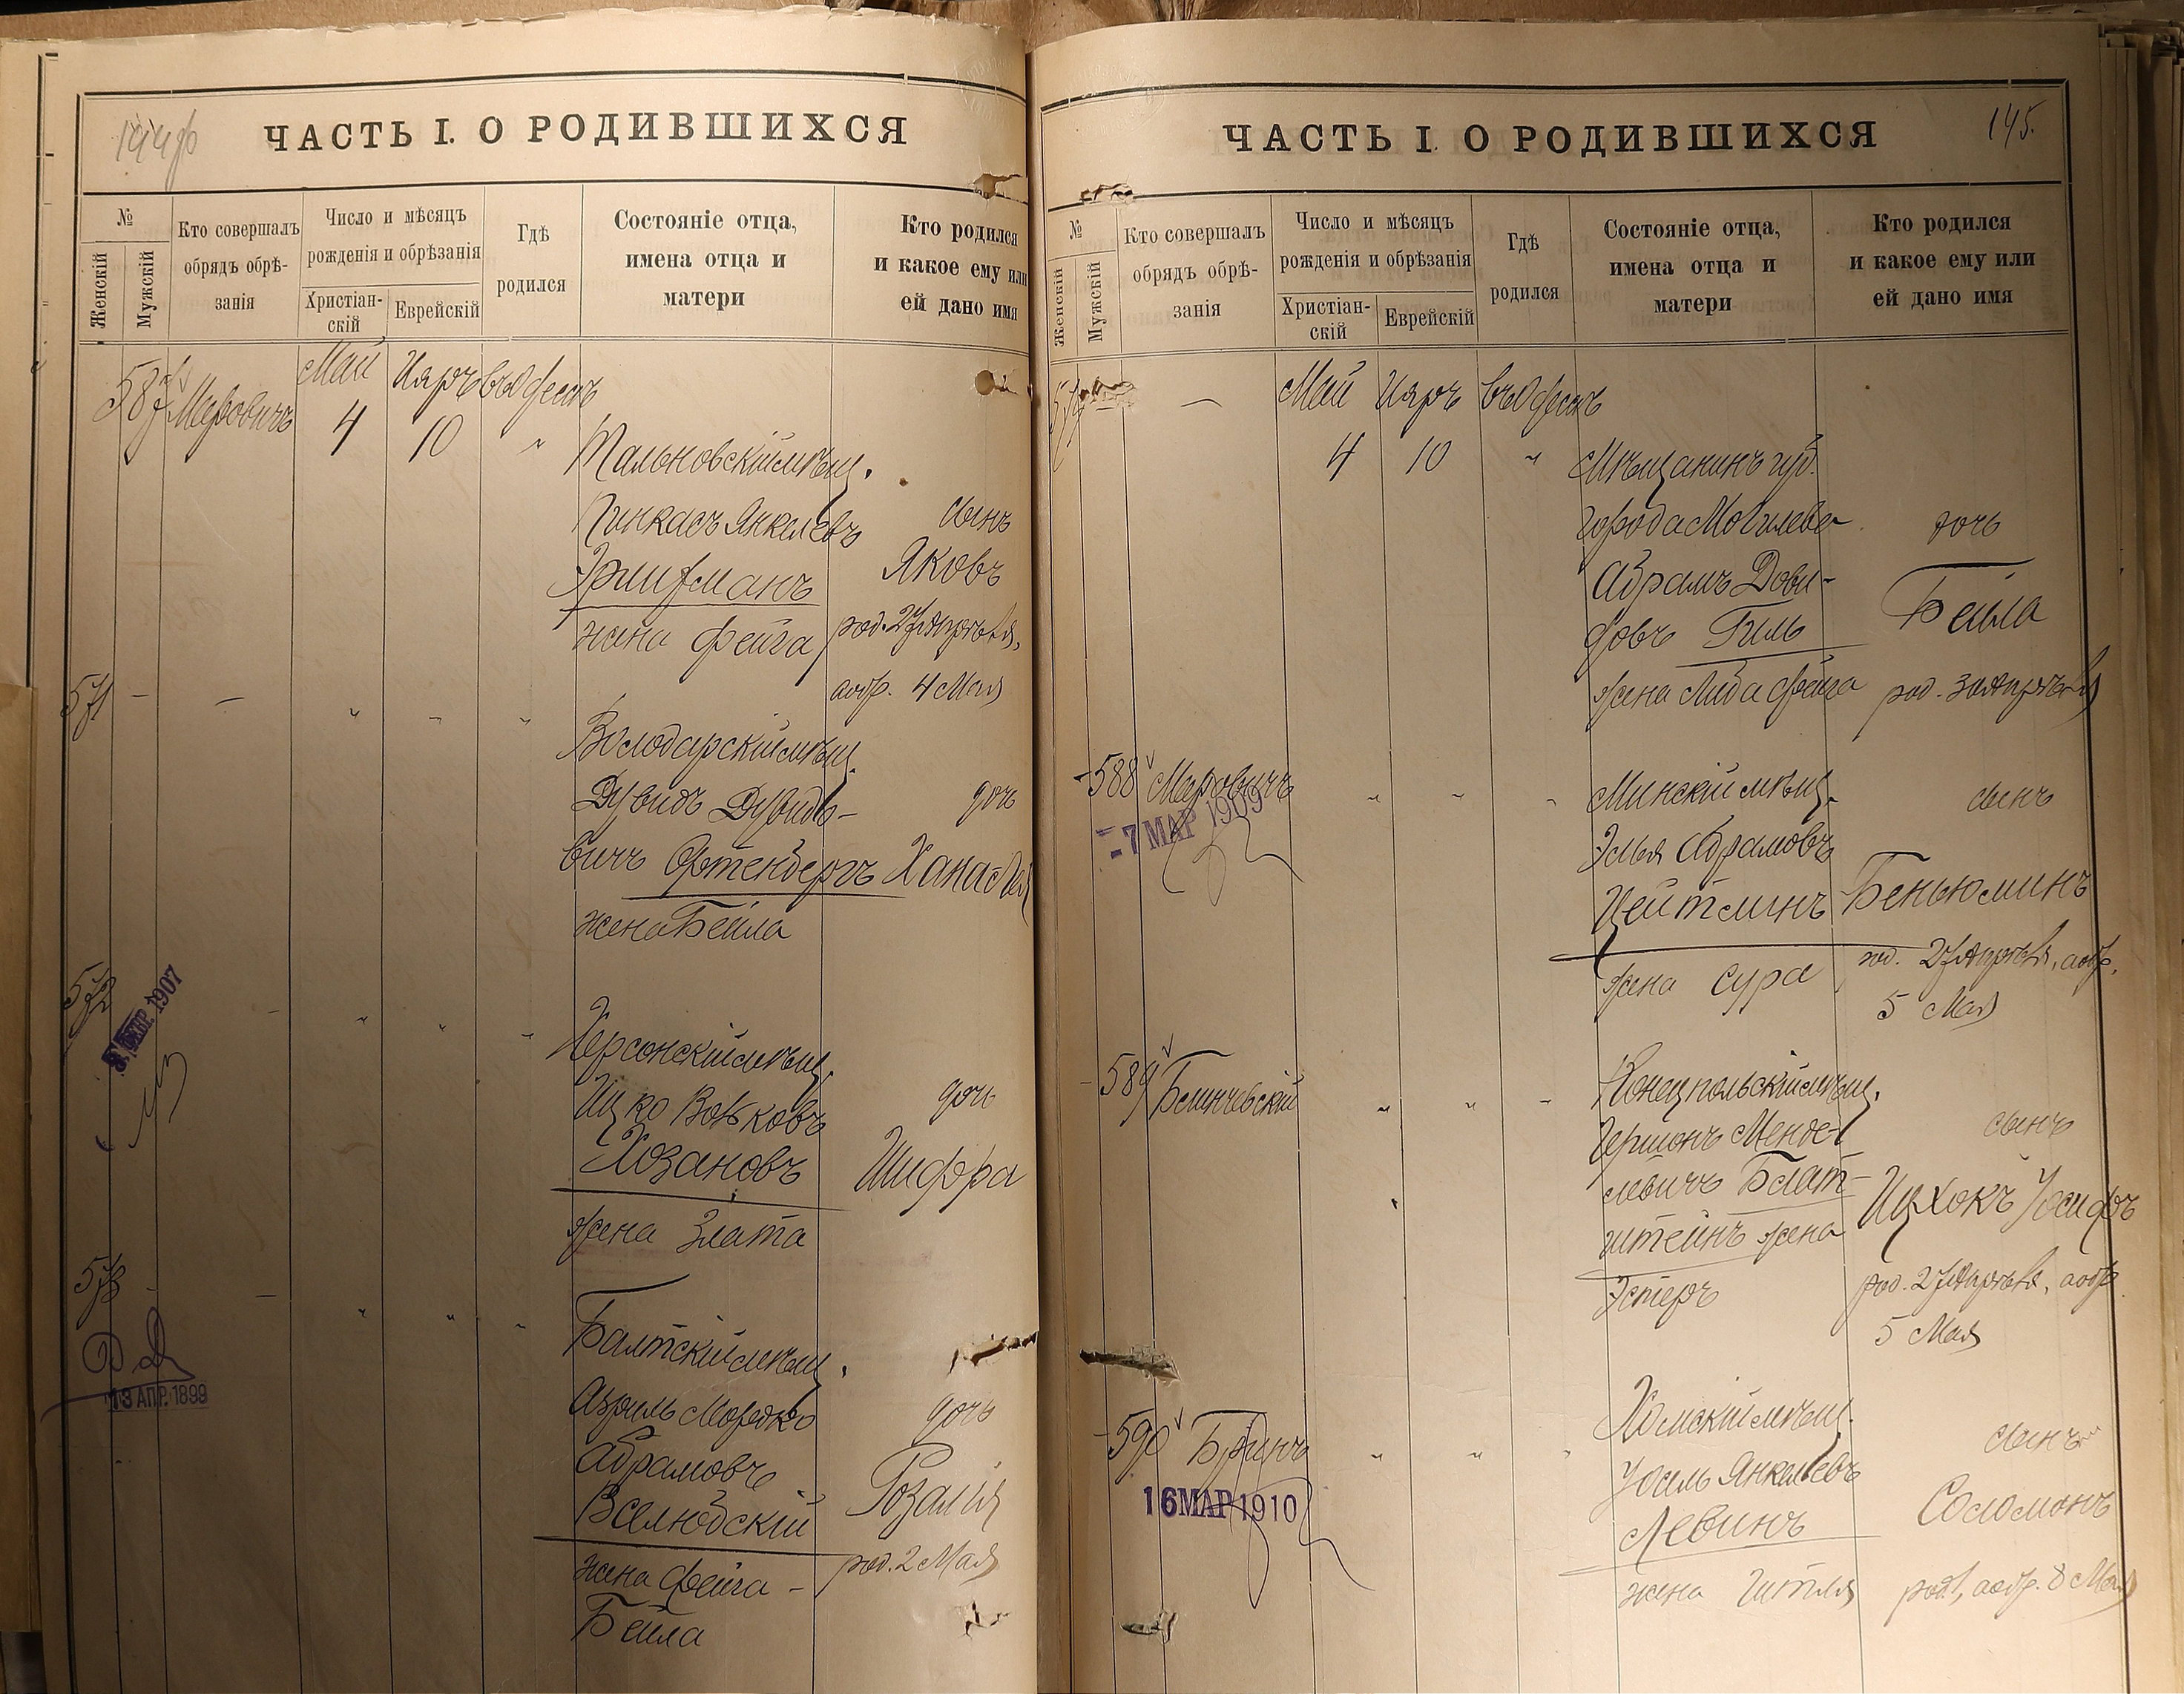 ЧАСТЬ I. О РОДИВШИХСЯ
№
Женскій
Мужскій
Кто совершалъ
обрядъ обрѣ-
занія
Число и мѣсяцъ
рожденія и обрѣзанія
Христіан-
скій
Еврейскій
Гдѣ
родился
Состояніе отца,
имена отца и
матери
Кто родился
и какое ему или
ей дано имя
Май Ияръ въ Одессѣ
587 Маровичъ 4 10 "
Тальновскій мѣщ.
Пинкасъ Янкелевъ
жена Фейга
сынъ
Яковъ
род. 27 Апрѣля,
а обр. 4 Мая
571 - - " " "
Володарскій мѣщ.
Дувидъ Дувидо-
вичъ Ортенбергъ
жена Бейла
дочь
Хана
572 - " " "
3 ФЕВР. 1907
Херсонскій мѣщ.
Ицко Вольковъ
Хозановъ
жена Злата
дочь
Шифра
573 - - " " "
13 АПР. 1899
Балтскій мѣщ.
Азриль Мордко
Абрамовъ
Вселюбскій
жена Фейга-
Бейла
дочь
Розалія
род. 2 Мая
145.
ЧАСТЬ I. О РОДИВШИХСЯ
№
Женскій
Мужскій
Кто совершалъ
обрядъ обрѣ-
занія
Число и мѣсяцъ
рожденія и обрѣзанія
Христіан-
скій
Еврейскій
Гдѣ
родился
Состояніе отца,
имена отца и
матери
Кто родился
и какое ему или
ей дано имя
- Май Ияръ въ Одессѣ
4 10 "
Мѣщанинъ губ.
города Могилева
Абрамъ Дови-
довъ Гиль
жена Либа Фейга
дочь
Бейла
род. 30 Апрѣля
588 Маровичъ " " "
-7 МАР 1909
Минскій мѣщ.
Элья Абрамовъ
Цейтлинъ
жена Сура
сынъ
Беньюминъ
род. 27 Апрѣля, а обр.
5 Мая
589 " " "
Конецпольскій мѣщ.
Гершонъ Менде-
левичъ Блат-
штейнъ жена
Эстеръ
сынъ
Ицхокъ Іосифъ
род. 27 Апрѣля, а обр.
5 Мая
590 " " "
16 МАР 1910
Хомскій мѣщ.
Іосель Янкелевъ
Левинъ
жена Гитля
сынъ
Соломонъ
род. 1, а обр. 8 Мая